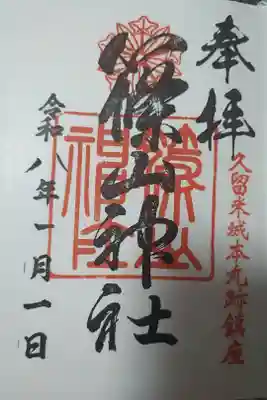 奉拝
久留米城本丸跡鎮座
篠山神社
令和八年一月一日